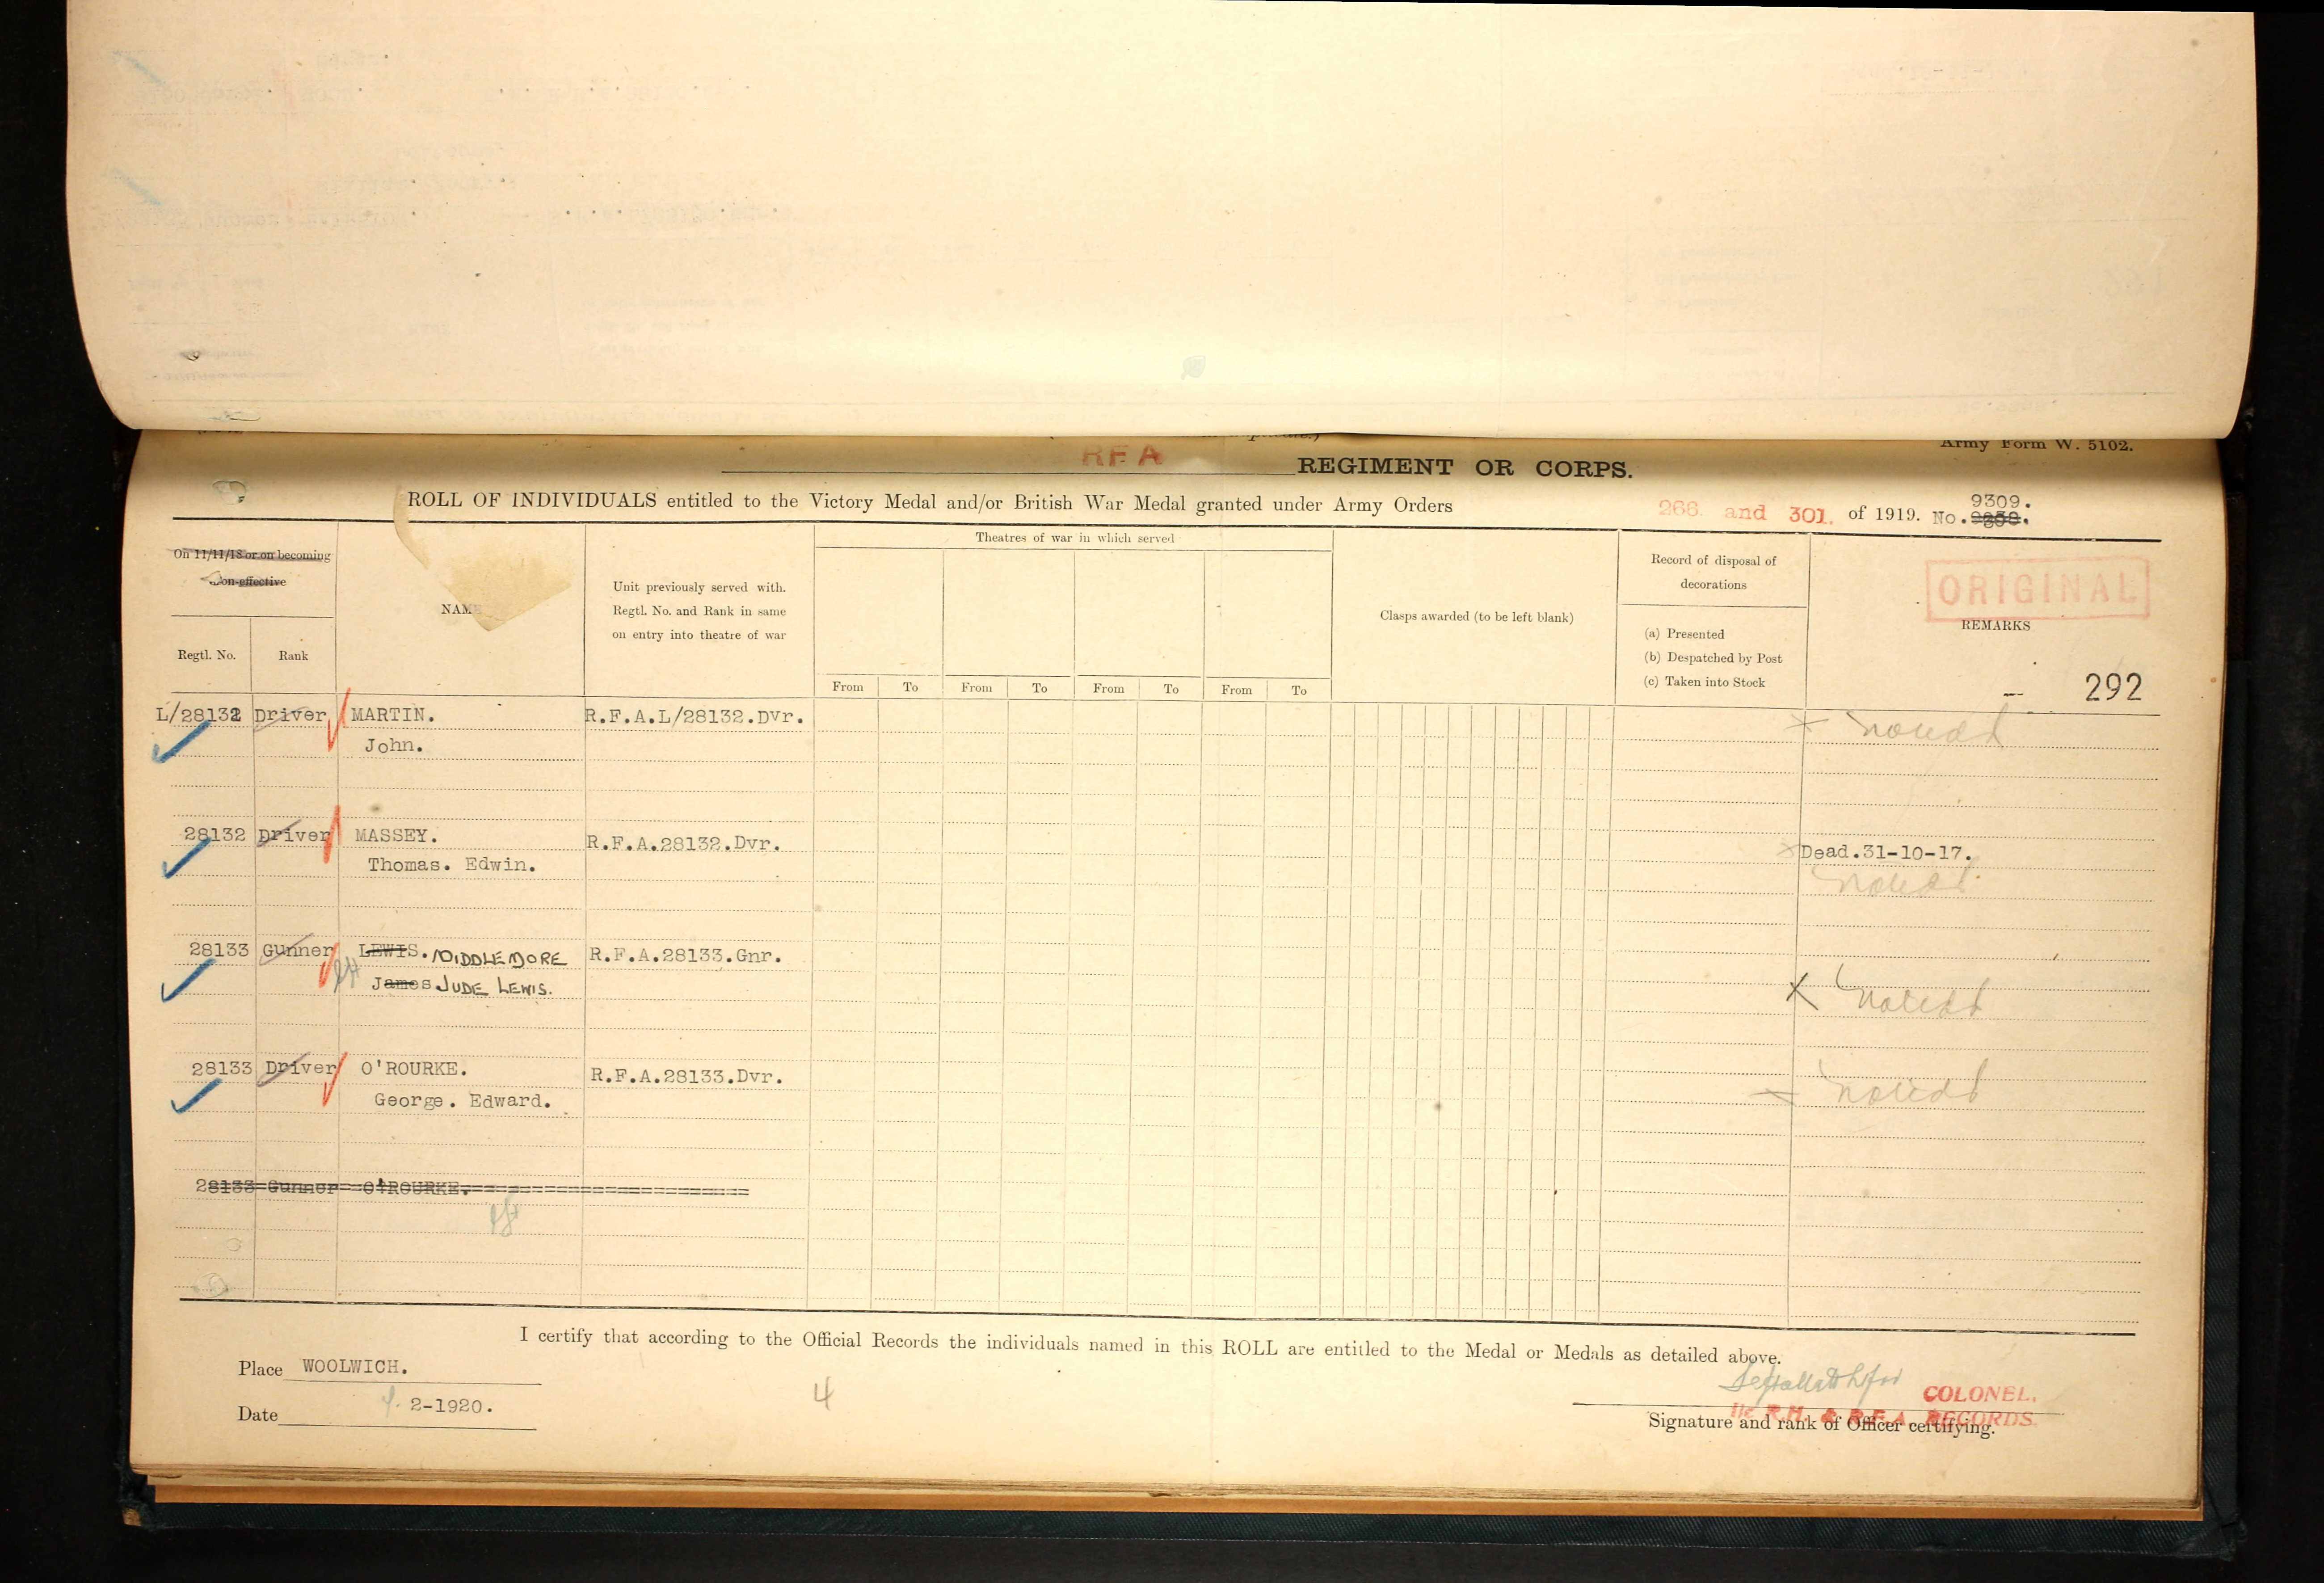 Army Form W. 5102.
RFA REGIMENT OR CORPS.
ROLL OF INDIVIDUALS entitled to the Victory Medal and/or British War Medal granted under Army Orders 266 and 301. of 1919. No.
9309.
On 11/11/18 or on becoming
Non-effective
Regtl. No.
Rank
NAME
Unit previously served with.
Regtl. No. and Rank in same
on entry into theatre of war
Theatres of war in which served
From To From To From To From To
Clasps awarded (to be left blank)
Record of disposal of
decorations
(a) Presented
(b) Despatched by Post
(c) Taken into Stock
ORIGINAL
REMARKS
292
L/28132 Driver MARTIN. R.F.A.L/28132.Dvr.
John.
28132 Driver MASSEY. R.F.A.28132.Dvr.
Thomas. Edwin.
Dead.31-10-17.
28133 Gunner LEWIS. MIDDLEMORE R.F.A.28133.Gnr.
James JUDE LEWIS.
28133 Driver O'ROURKE. R.F.A.28133.Dvr.
George. Edward.
28133 Gunner O'ROURKE.
I certify that according to the Official Records the individuals named in this ROLL are entitled to the Medal or Medals as detailed above.
Place WOOLWICH.
Date 2-1920.
4
COLONEL.
R.H. & R.F.A. RECORDS.
Signature and rank of Officer certifying.